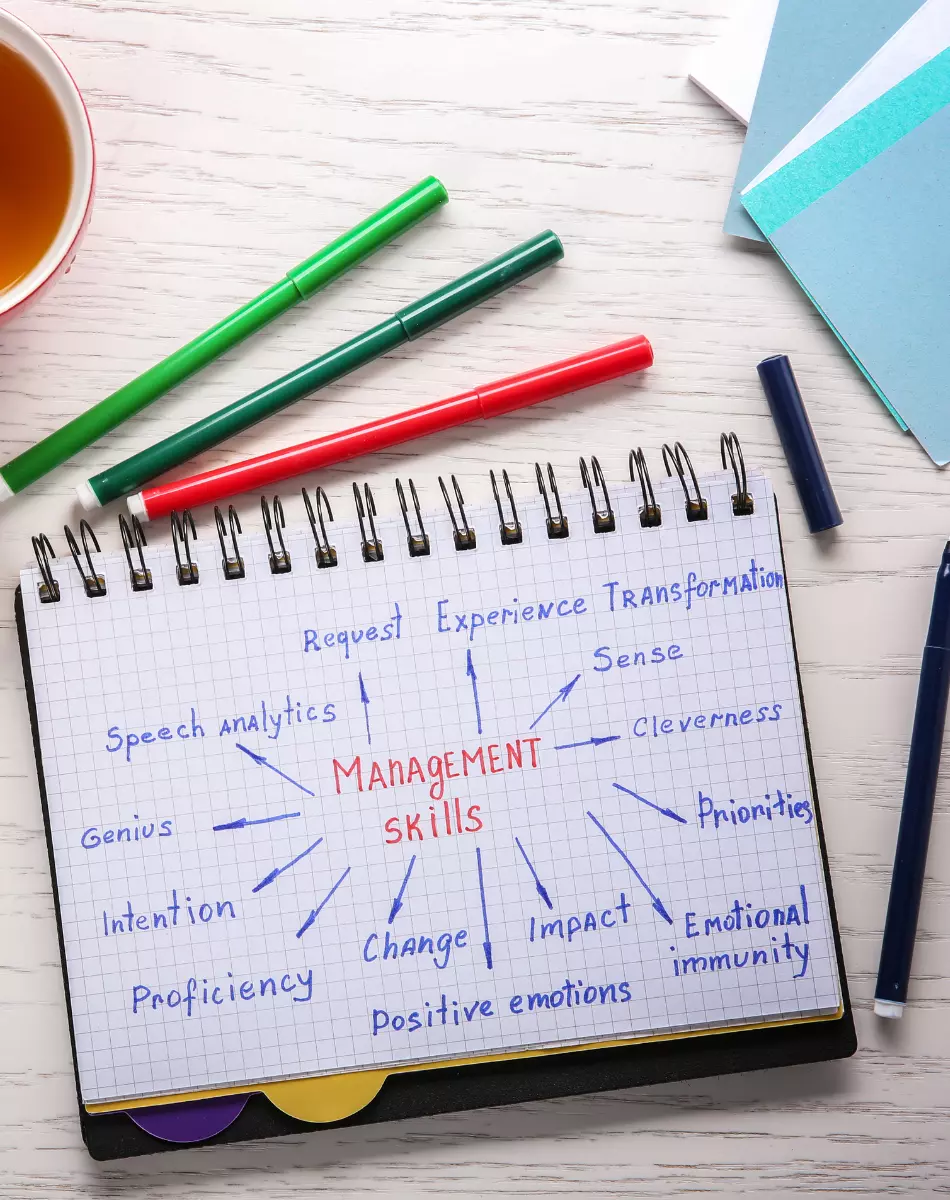 Request
Experience
Transformation
Sense
Speech analytics
Cleverness
Management
skills
Genius
Priorities
Intention
Change
Impact
Emotional
immunity
Proficiency
Positive emotions